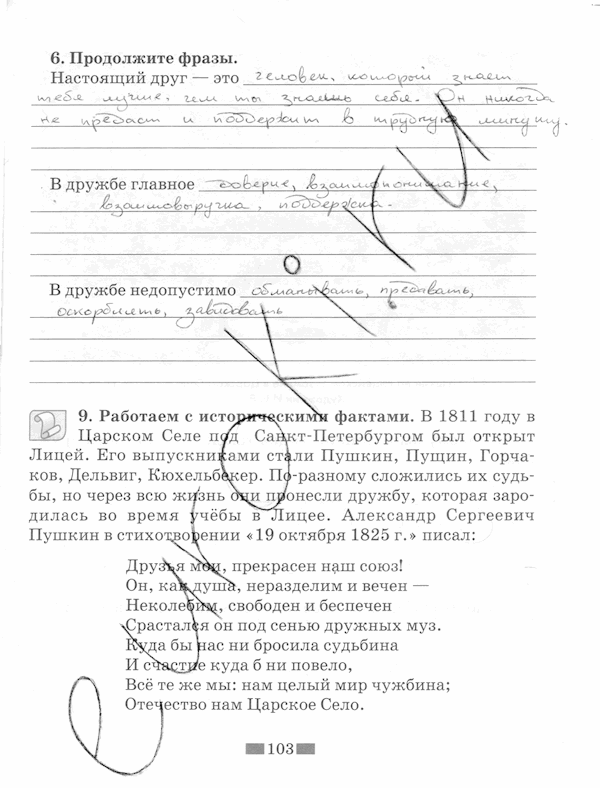 6. Продолжите фразы.
Настоящий друг — это человек, который знает
тебя лучше, чем ты знаешь себя. Он никогда
не предаст и поддержит в трудную минуту.
В дружбе главное доверие, взаимопонимание,
взаимовыручка, поддержка.
В дружбе недопустимо обманывать, предавать,
оскорблять, завидовать
9. Работаем с историческими фактами. В 1811 году в
Царском Селе под Санкт-Петербургом был открыт
Лицей. Его выпускниками стали Пушкин, Пущин, Горча-
ков, Дельвиг, Кюхельбекер. По-разному сложились их судь-
бы, но через всю жизнь они пронесли дружбу, которая заро-
дилась во время учёбы в Лицее. Александр Сергеевич
Пушкин в стихотворении «19 октября 1825 г.» писал:
Друзья мои, прекрасен наш союз!
Он, как душа, неразделим и вечен —
Неколебим, свободен и беспечен
Срастался он под сенью дружных муз.
Куда бы нас ни бросила судьбина
И счастие куда б ни повело,
Всё те же мы: нам целый мир чужбина;
Отечество нам Царское Село.
103